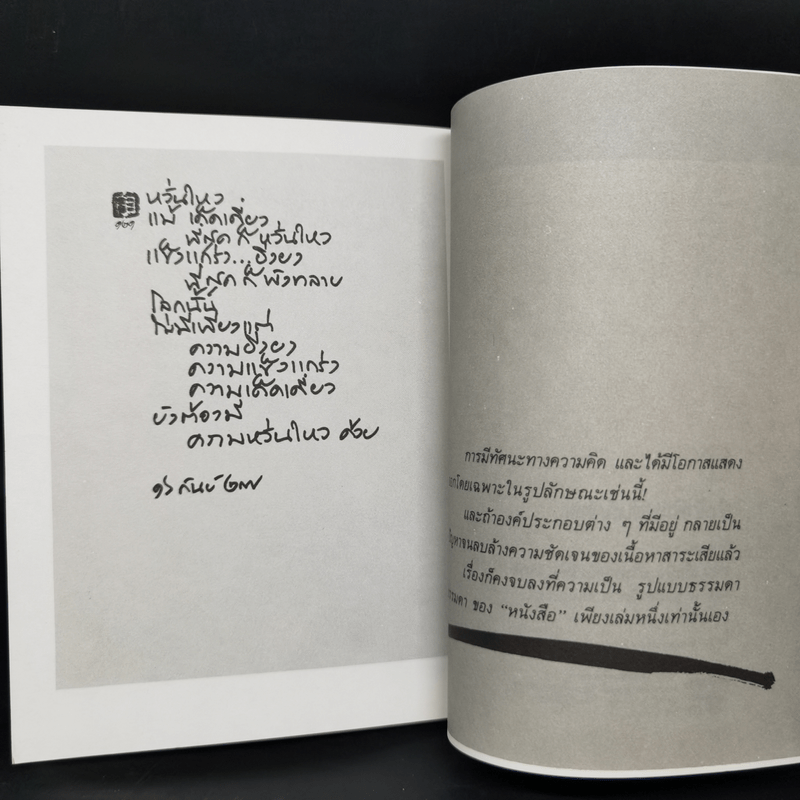 หวั่นไหว
แม้ เด็ดเดี่ยว
ที่สุด ก็ หวั่นไหว
แข็งแกร่ง...ยิ่งยง
ที่สุด ก็ พังทลาย
โลกนี้
ไม่มีเพียงแต่
ความยิ่งยง
ความแข็งแกร่ง
ความเด็ดเดี่ยว
ยังต้องมี
ความหวั่นไหว ด้วย
๑๖ กันย์ ๒๗
การมีทัศนะทางความคิด และได้มีโอกาสแสดง
โดยเฉพาะในรูปลักษณะเช่นนี้!
และถ้าองค์ประกอบต่าง ๆ ที่มีอยู่ กลายเป็น
ปัญหาจนลบล้างความชัดเจนของเนื้อหาสาระเสียแล้ว
เรื่องก็คงจบลงที่ความเป็น รูปแบบธรรมดา
ธรรมดา ของ "หนังสือ" เพียงเล่มหนึ่งเท่านั้นเอง